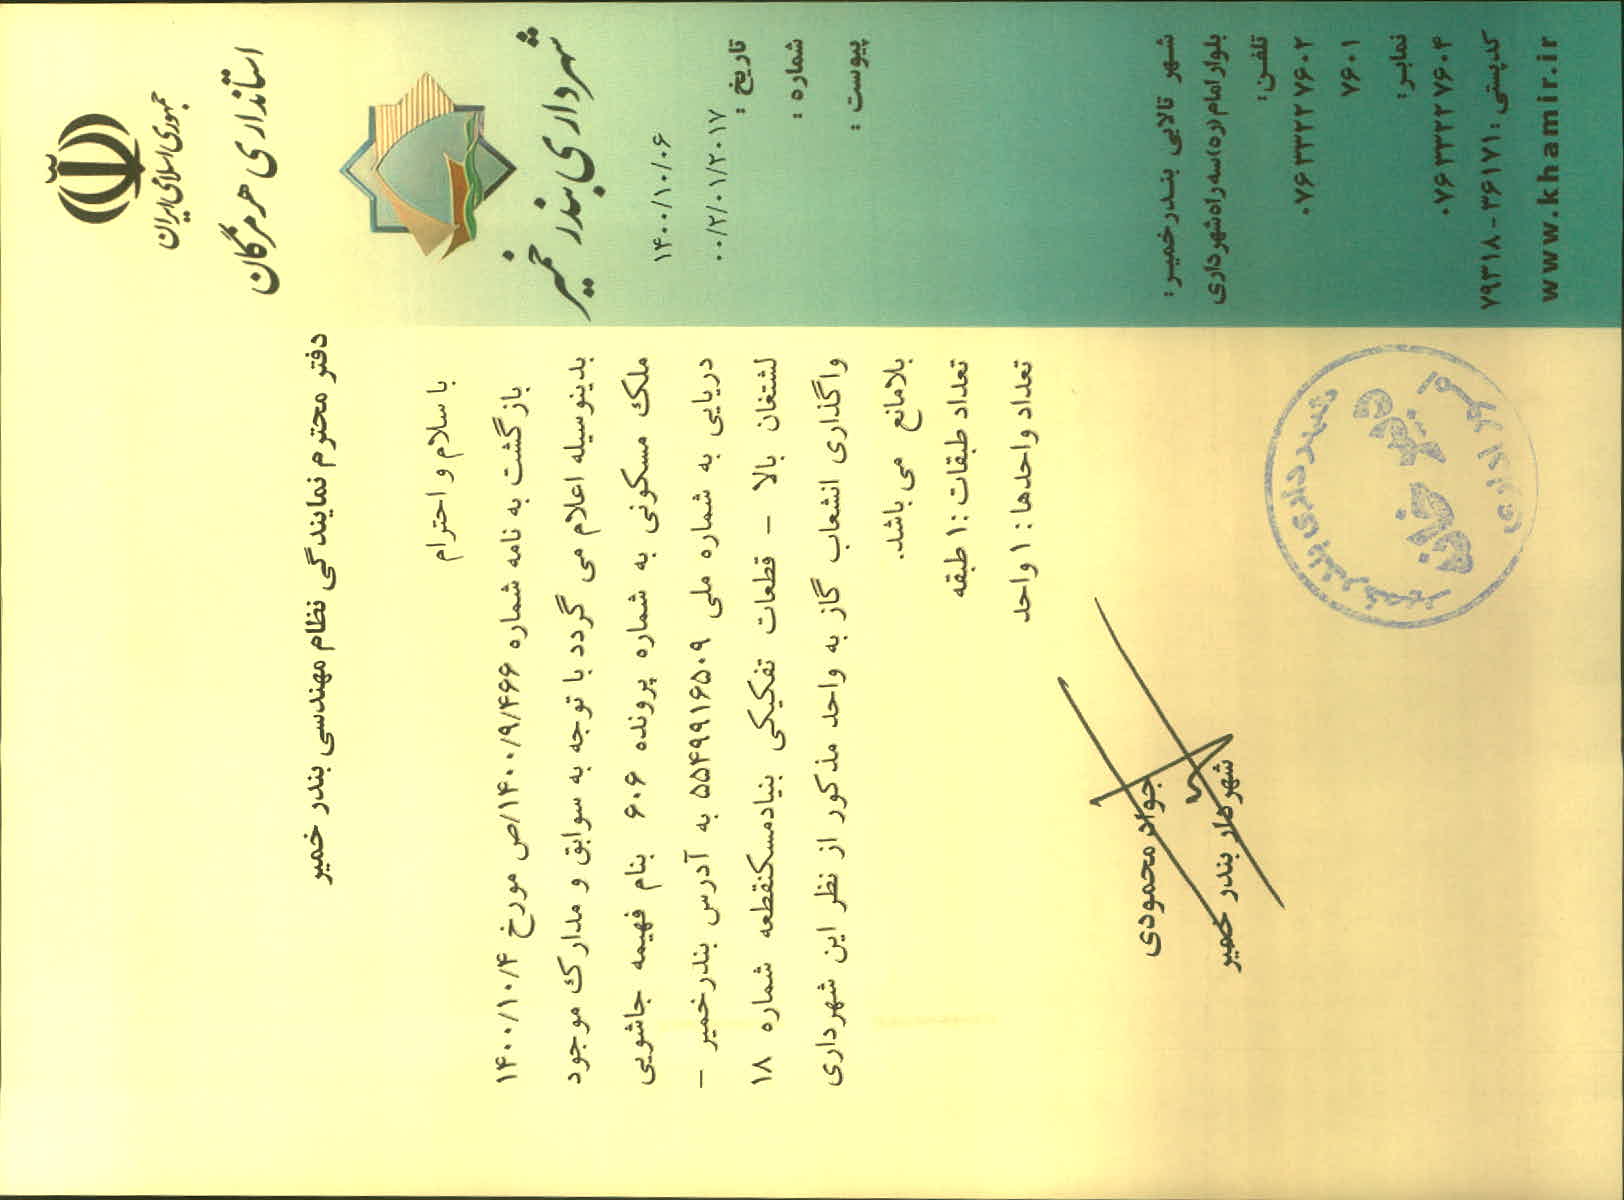 جمهوری اسلامی ایران
استانداری هرمزگان
شهرداری بندر خمیر
۱۴۰۰/۱۰/۰۶
۰۰/۲/۰۱/۲۰۱۷
تاریخ :
شماره :
پیوست :
دفتر محترم نمایندگی نظام مهندسی بندر خمیر
با سلام و احترام
بازگشت به نامه شماره ۱۴۰۰/۹/۴۶۶/ص مورخ ۱۴۰۰/۱۰/۴
بدینوسیله اعلام می گردد با توجه به سوابق و مدارک موجود
ملک مسکونی به شماره پرونده ۶۰۶ بنام فهیمه جاشویی
دریایی به شماره ملی ۵۵۴۹۹۱۶۵۰۹ به آدرس بندرخمیر –
لشتغان بالا – قطعات تفکیکی بنیادمسکنقطعه شماره ۱۸
واگذاری انشعاب گاز به واحد مذکور از نظر این شهرداری
بلامانع می باشد.
تعداد طبقات :۱ طبقه
تعداد واحدها : ۱ واحد
جواد محمودی
شهردار بندر خمیر
شهرداری بندر خمیر
امور اداری
شهر تالابی بندرخمیر:
بلوار امام(ره)سه راه شهرداری
تلفن:
۰۷۶۳۳۲۲۷۶۰۲
۷۶۰۱
نمابر:
۰۷۶۳۳۲۲۷۶۰۴
کدپستی : ۳۶۱۷۱-۷۹۳۱۸
www.khamir.ir